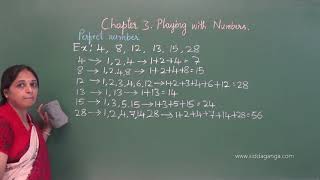 Chapter 3. Playing with Numbers.
Perfect number
Ex: 4, 8, 12, 13, 15, 28
4 → 1, 2, 4 → 1+2+4 = 7
8 → 1, 2, 4, 8 → 1+2+4+8 = 15
12 → 1, 2, 3, 4, 6, 12 → 1+2+3+4+6+12 = 28
13 → 1, 13 → 1+13 = 14
15 → 1, 3, 5, 15 → 1+3+5+15 = 24
28 → 1, 2, 4, 7, 14, 28 → 1+2+4+7+14+28 = 56
www.siddaganga.com